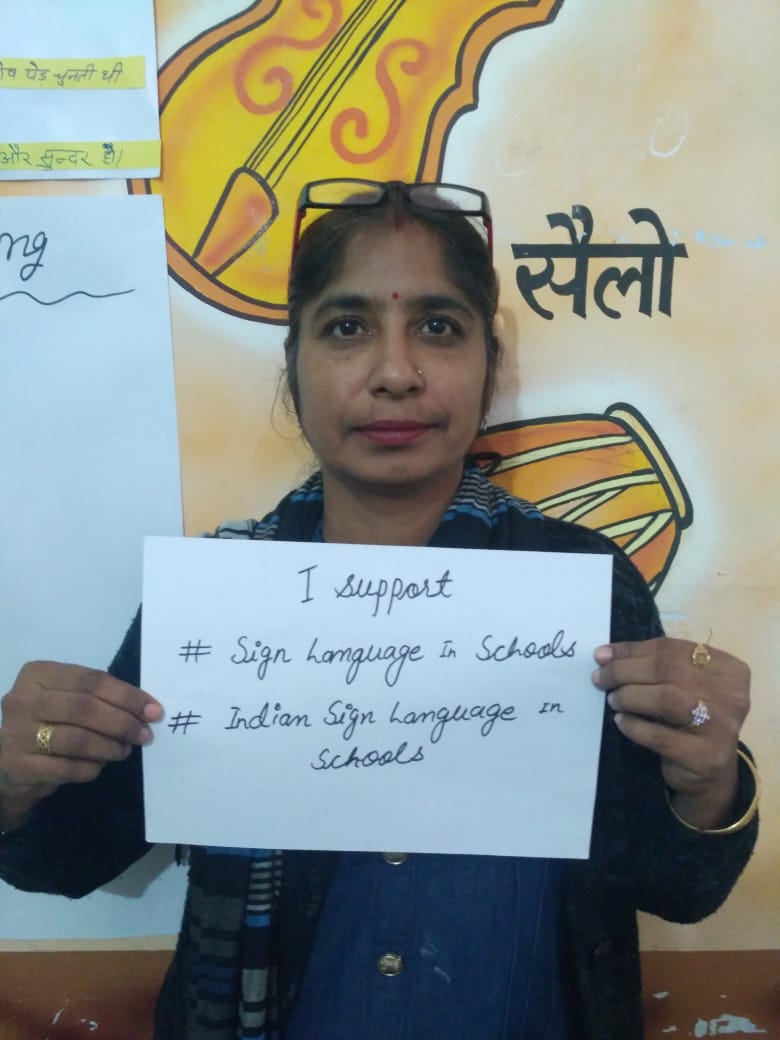 पेड़ चुनती थी
और सुन्दर है।
ng
सैलो
I support
# Sign Language In Schools
# Indian Sign Language in
Schools